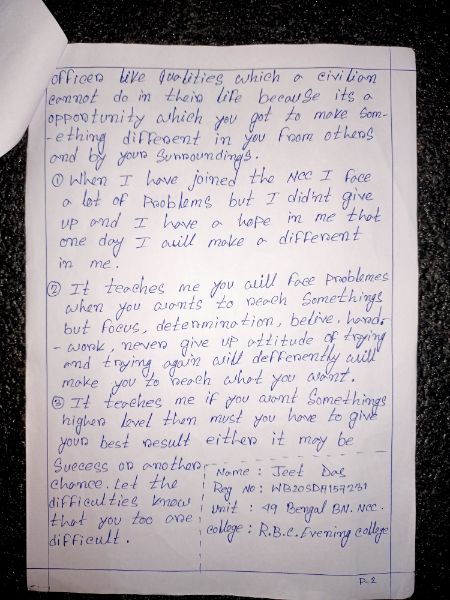 officer like Qualities which a civilian
cannot do in their life because its a
opportunity which you got to make som-
-ething different in you from others
and by your Surroundings.
① When I have joined the NCC I face
a lot of Problems but I didn't give
up and I have a hope in me that
one day I will make a different
in me.
② It teaches me you will face Problemes
when you wants to reach Somethings
but focus, determination, belive, hard-
-work, never give up attitude of trying
and trying again will defferently will
make you to reach what you want.
③ It teaches me if you want Somethings
higher level then must you have to give
your best result either it may be
Success or another
chance. Let the
difficulties know
that you too are
difficult.
Name : Jeet Das
Reg No : WB20SDA157231
Unit : 49 Bengal BN. NCC.
College : R.B.C. Evening College
P-2